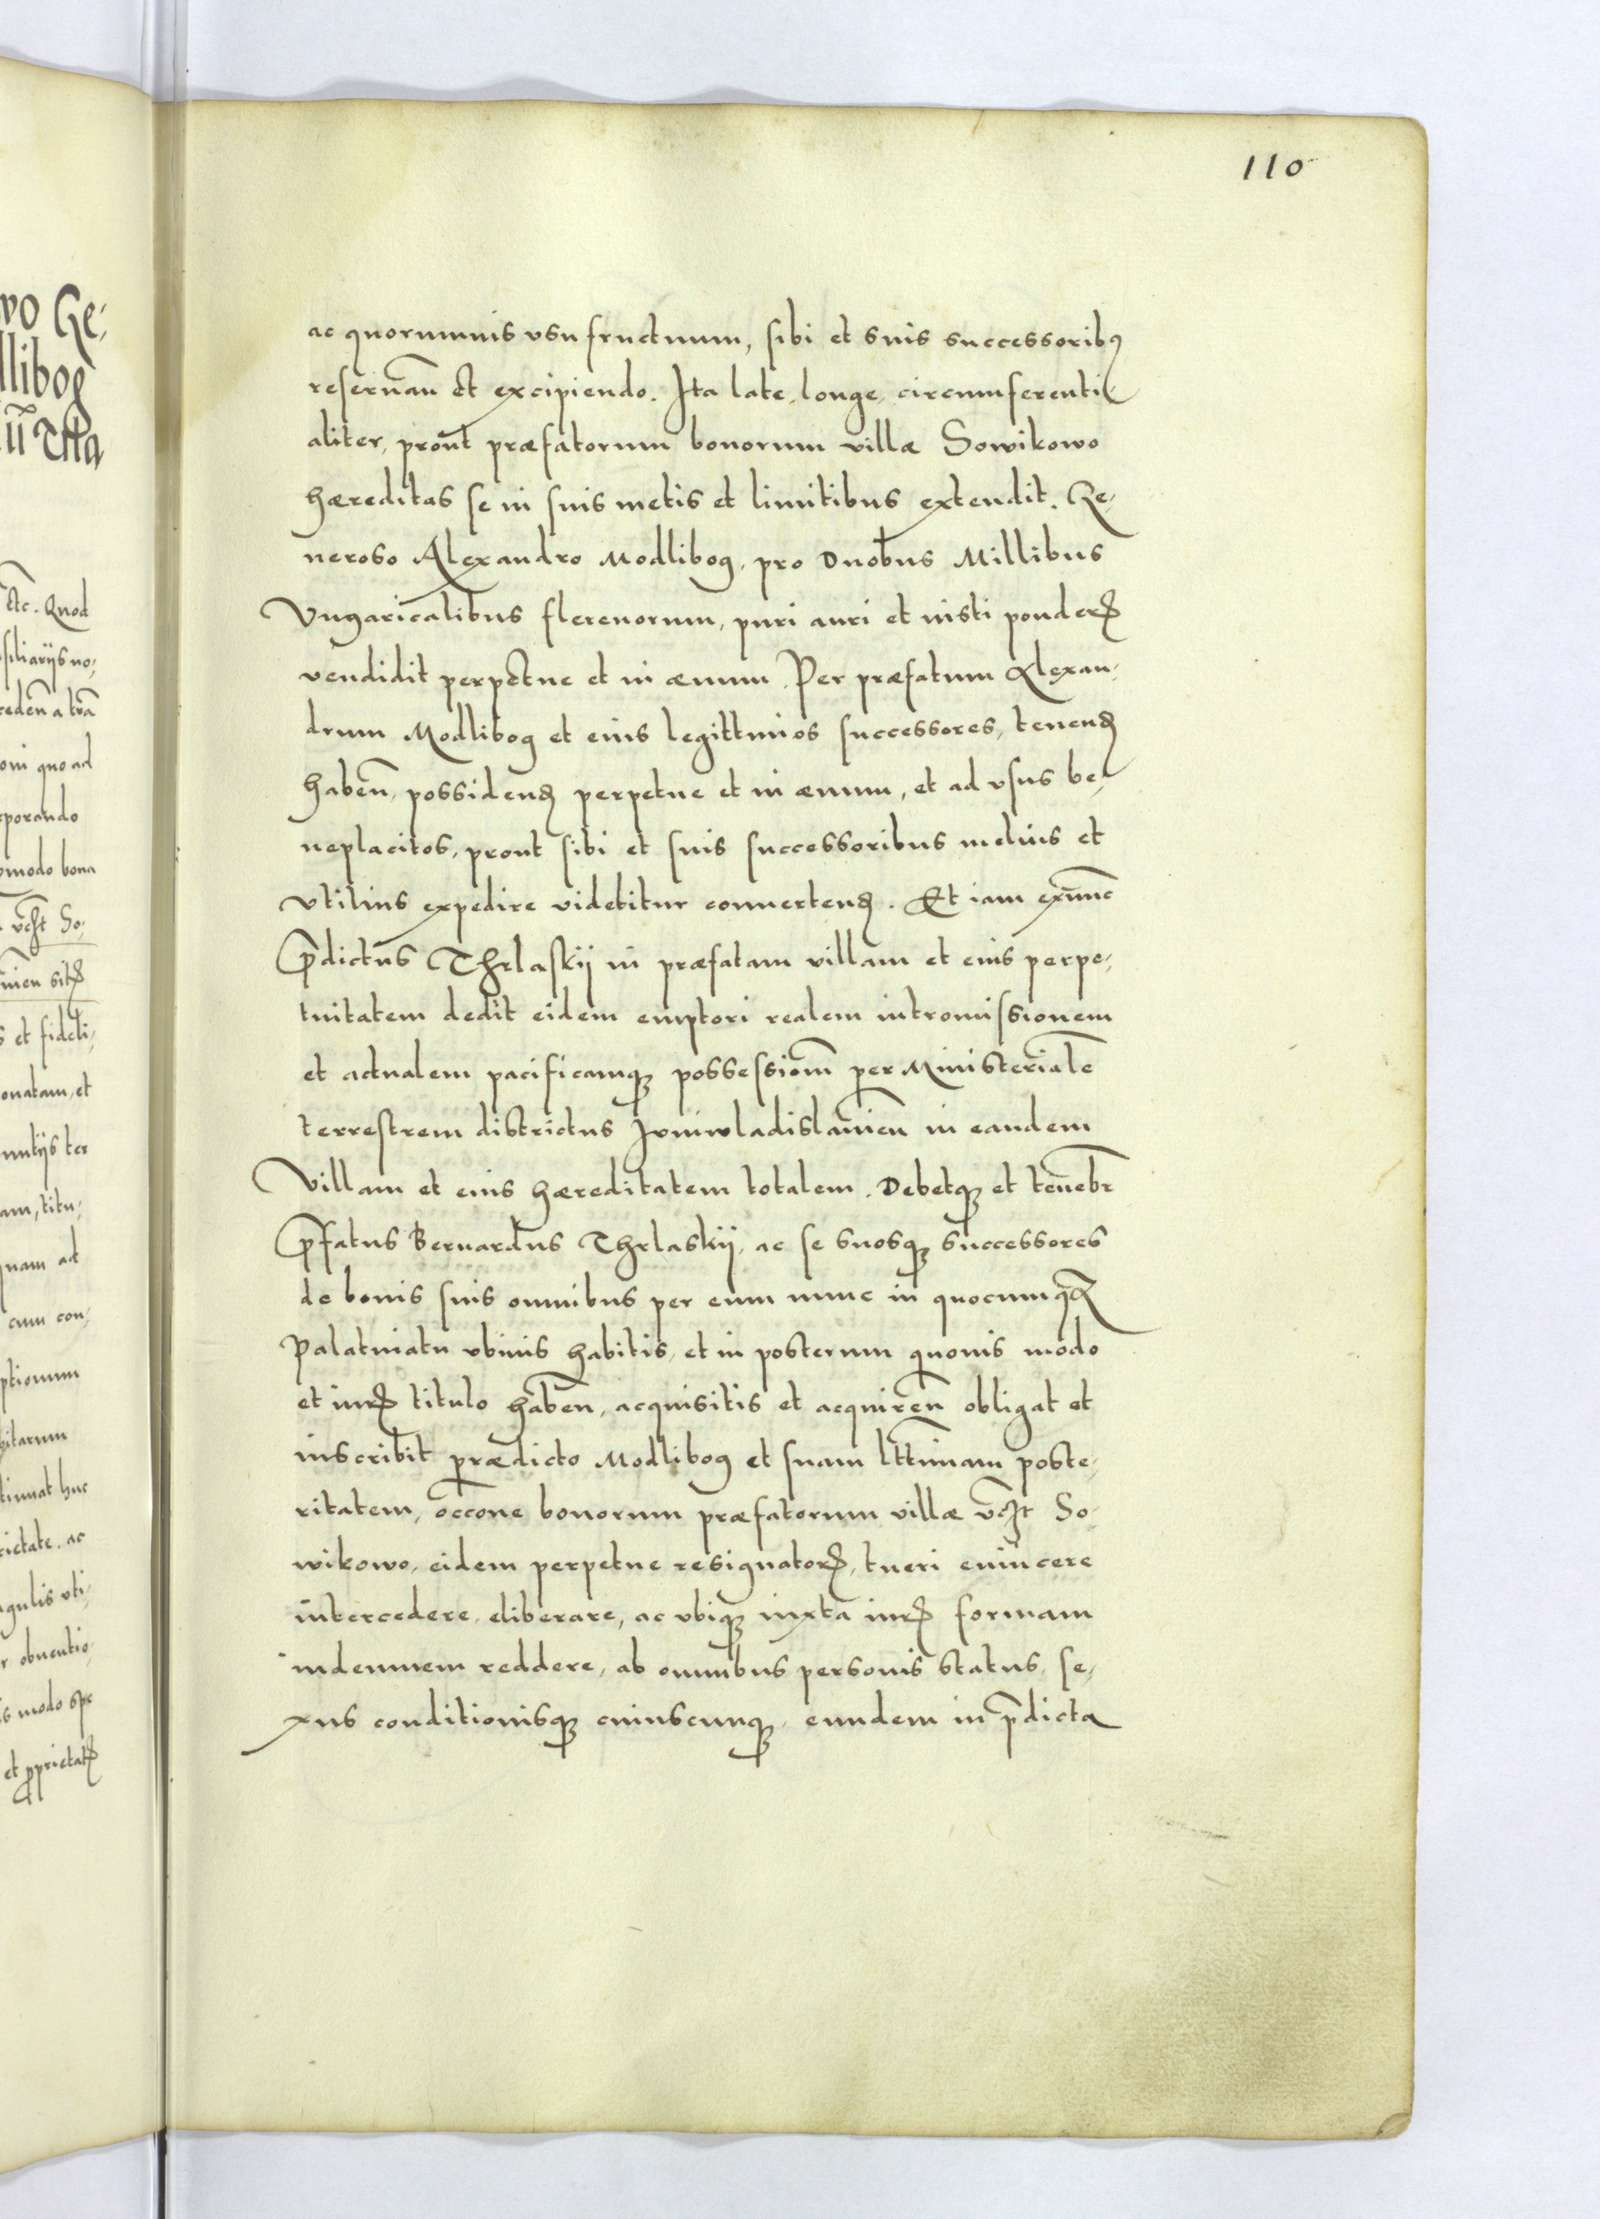 110
ac quorumuis vsufructuum, sibi et suis successoribus
reseruan̄ et excipiendo. Ita late, longe, circumferenti-
aliter, prout præfatorum bonorum villæ Sowikowo
hæreditas se in suis metis et limitibus extendit. Ge-
neroso Alexandro Modlibog, pro Duobus Millibus
Vngaricalibus florenorum, puri auri et iusti ponderis
vendidit perpetue et in æuum. Per præfatum Alexan-
drum Modlibog et eius legittimos successores, tenend
haben̄, possidend perpetue et in æuum, et ad vsus be-
neplacitos, prout sibi et suis successoribus melius et
vtilius expedire videbitur conuertend. Et iam exnunc
p̄dictus Thrlaskij in præfatam villam et eius perpe-
tuitatem dedit eidem emptori realem intromissionem
et actualem pacificamq₃ possessiom̄ per Ministerialē
terrestrem districtus Juniwladislauien̄ in eandem
Villam et eius hæreditatem totalem. Debetq₃ et tenebr̄
p̄fatus Bernardus Thrlaskij, ac se suosq₃ successores
de bonis suis omnibus per eum nunc in quocumq₃
Palatinatu vbiuis habitis, et in posterum quouis modo
et iuris titulo haben̄, acquisitis et acquiren̄ obligat et
inscribit prædicto Modlibog et suam lttimam̄ poste-
ritatem, occōne bonorum præfatorum villæ vc̄ht So-
wikowo, eidem perpetue resignatoris, tueri euincere
intercedere, eliberare, ac vbiq₃ iuxta iuris formam
indemnem reddere, ab omnibus personis status, se-
xus conditionisq₃ cuiuscunq₃, eundem in p̄dicta
wo Ge-
llibog
ctc. Quod
siliarijs no-
ceden̄ a trā
oni quo ad
rporando
modo bona
vc̄ht So-
s et fideli-
onatam, et
nutijs ter
am, titu-
quam ad
cum con-
ptionum
bitarum
tinuat huc
rietate. ac
ngulis vti-
r obuentio-
is modo spe
et proprietatis